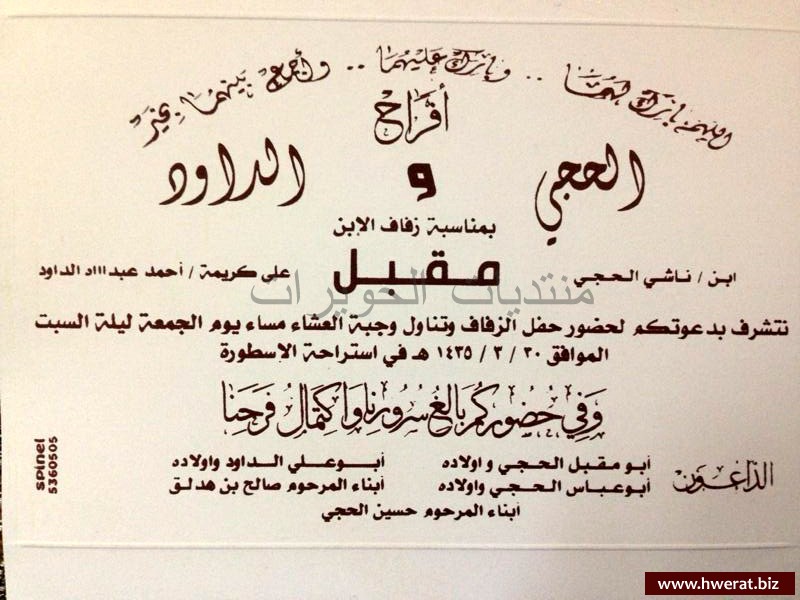 اللهم بارك لهما .. وبارك عليهما .. واجمع بينهما بخير
أفراح
الحجي و الداود
بمناسبة زفاف الإبن
ابن / ناشي الحجي مقبل على كريمة / أحمد عبدالله الداود
منتديات الحويرات
نتشرف بدعوتكم لحضور حفل الزفاف وتناول وجبة العشاء مساء يوم الجمعة ليلة السبت
الموافق ٢٠ / ٢ / ١٤٣٥ هـ في استراحة الاسطورة
وفي حضوركم بالغ سرورنا واكتمال فرحنا
الداعون
أبو مقبل الحجي و اولاده أبو علي الداود واولاده
أبو عباس الحجي واولاده أبناء المرحوم صالح بن هدلق
أبناء المرحوم حسين الحجي
spinel
5360505
www.hwerat.biz